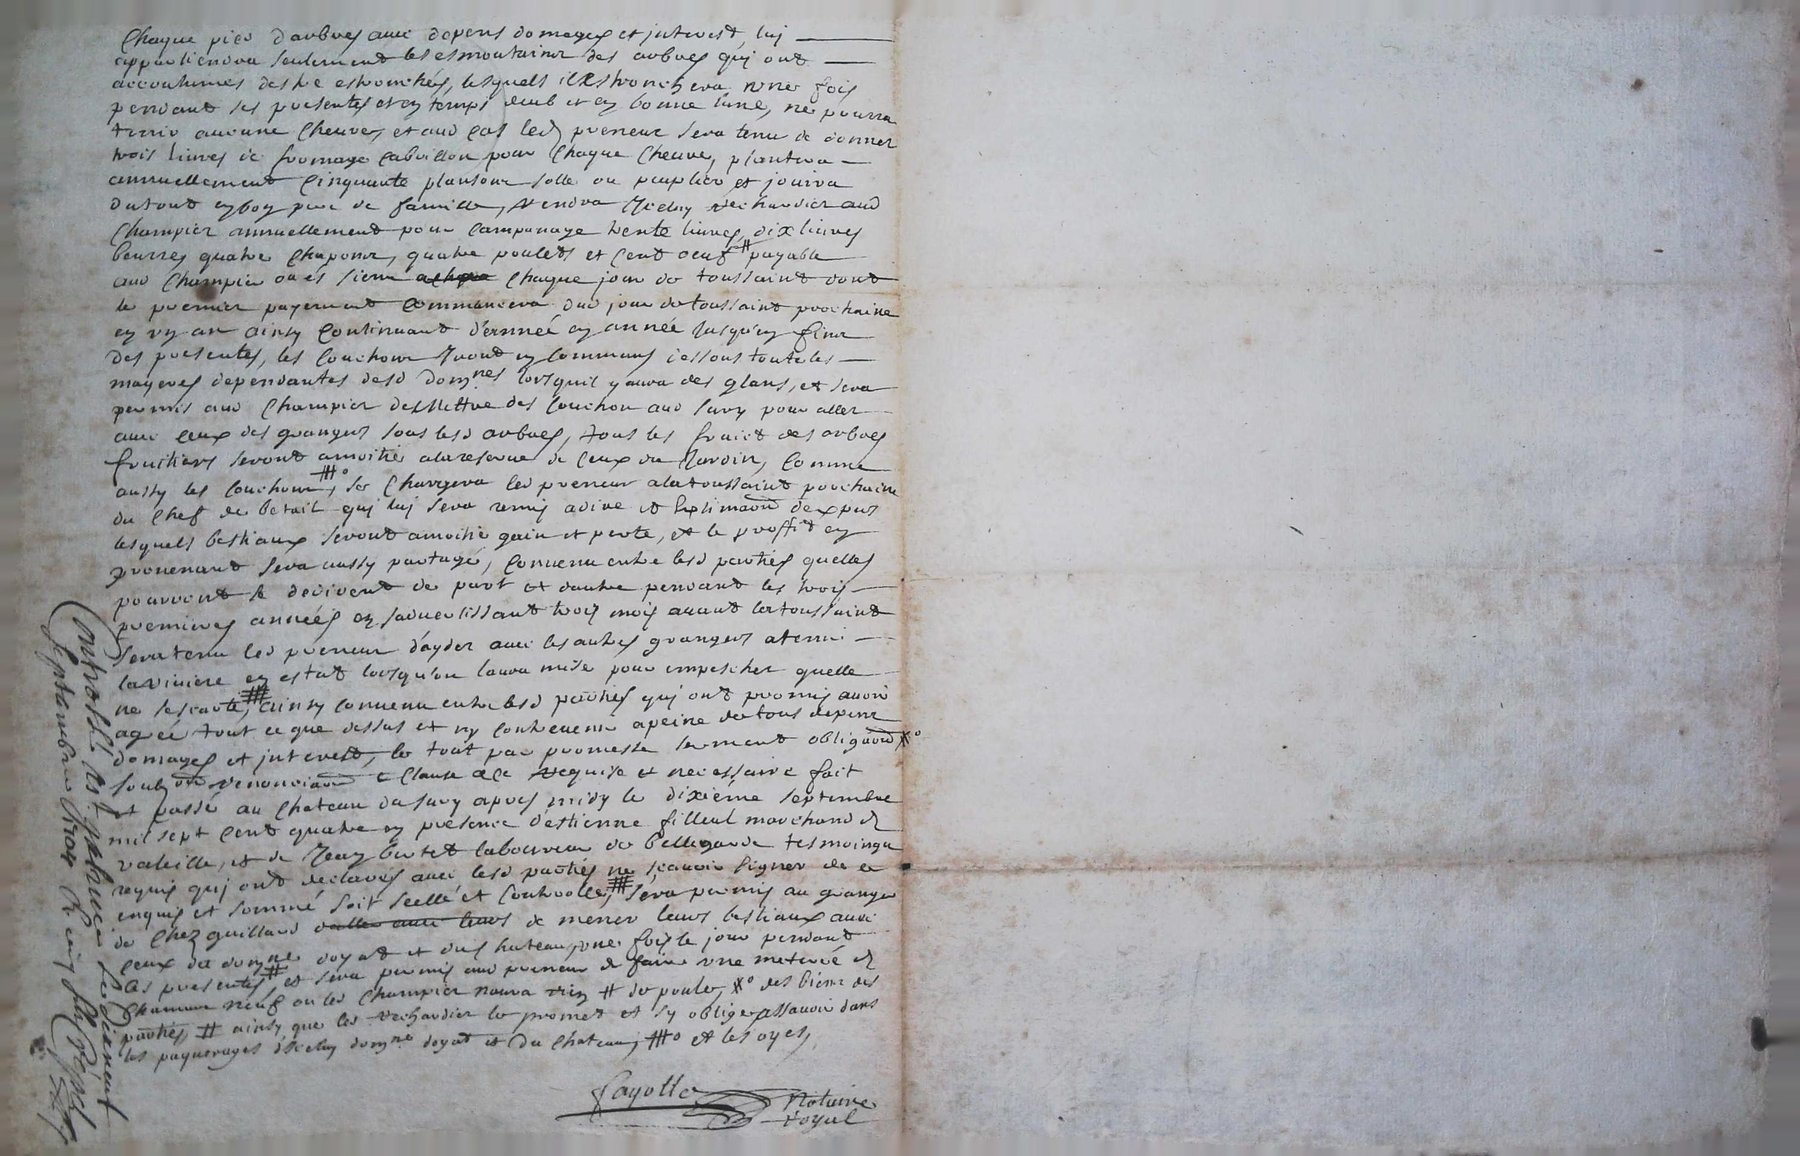 Chaque pied darbres avec depens domages et jnterest, luj
appartiendra seulement les esmoutains des arbres quj ont
accoutumes destre estronchés, lesquels il Estronchera vne fois
pendant les presentes et en temps deub et en bonne lune, ne pourra
tenir aucune cheure, et aud cas led preneur sera tenu de donner
trois liures de fromage cabrillon pour chaque cheure, plantera
annuellement cinquante plansons solle ou peuplier et jouira
du tout en bon pere de famille, rendra Iceluy Rechardier aud
Champier annuellement pour campanage trente liures, dix liures
beurre, quatre chapons, quatre poulets et cent oeuf # payable
aud Champier ou es siens chaque jour de toussaint dont
le premier payement commancera dud jour de toussaint prochaine
en vn an ainsy continuant d'ennée en année Jusqu'en fins
des presentes, les couchons Iront en commung dessous toutes les
mayeres dependantes desd domnes lorsquil y aura des glans, et sera
permis aud Champier de Mettre des couchon aud Sury pour aller
auec ceux des grangers sous lesd arbres, tous les fruict des arbres
fruitiers seront amoitié alareserue de ceux du Jardin, Comme
aussy les couchons #°, se Chargera led preneur alatoussaint prochaine
du chef de betail quj luj sera remis adire et Estimaon dexpers
lesquels bestiaux seront amoitié gain et perte, et le proffit en
prouenant sera aussy partagé, conuenu entre lesd parties quelles
pourront se dedirent de part et dautre pendant les trois
premieres années en saduertissant trois mois auant la toussaint
sera tenu led preneur d'ayder auec les autres grangers atenir
lariuiere en estat lorsqu'on laura mise pour empescher quelle
ne sescarte, # ainsy conuenu entre lesd parties quj ont promis auoir
agreé tout ce que dessus et ny contreuenir apeine de tous depens
domages et jnterest, le tout par promesse serment obligaon #°
soubon renonciaon & clause ace requise et necessaire fait
et passé au chateau du Sury apres midy le dixieme septembre
mil sept cent quatre en presence destienne filleul marchand de
valeille, et de Jean bertet laboureur de bellegarde tesmoings
requis quj ont declarés auec lesd parties ne scauoir signer de ce
enquis et sommé soit scellé et controollé, # sera permis au granger
de chez guilland de mener leurs bestiaux auec
ceux du domne doyat et du chateau, vne fois le jour pendant
les presentes # et sera permis aud preneur de faire vne meterée de
chanure neuf ou led Champier naura rien # de poule, #° des biens des
parties, # ainsy que led Rechardier le promet et sy oblige assauoir dans
les paquerages diceluy domne doyat et du chateau, #° et les oyes,
fayolle Notaire
royal
Controollé
Septembre